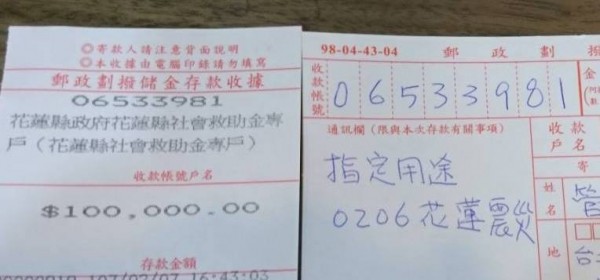 ◎寄款人請注意背面說明
◎本收據由電腦印錄請勿填寫
郵政劃撥儲金存款收據
06533981
花蓮縣政府花蓮縣社會救助金專
戶(花蓮縣社會救助金專戶)
收款帳號戶名
$100,000.00
存款金額
107/02/07 16:43:03
98-04-43-04 郵政劃撥
收款帳號
06533981
金
通訊欄(限與本次存款有關事項)
指定用途
0206花蓮震災
收款
戶名
寄
姓名
地
台